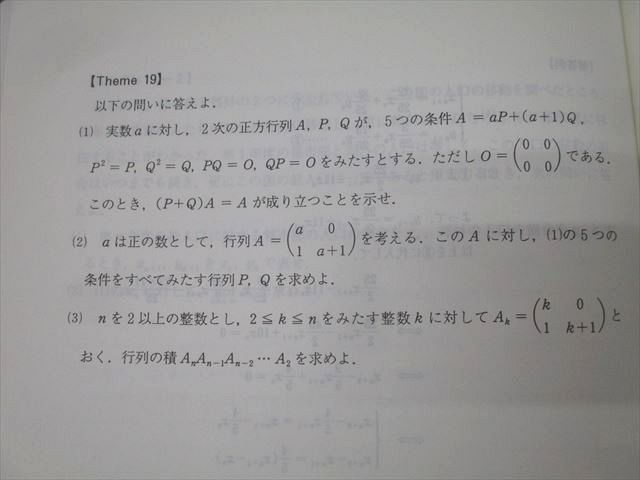 【Theme 19】
以下の問いに答えよ．
(1) 実数 a に対し，2次の正方行列 A, P, Q が，5つの条件 A = aP+(a+1)Q,
P² = P, Q² = Q, PQ = O, QP = O をみたすとする．ただし O = (0 0 / 0 0) である．
このとき，(P+Q)A = A が成り立つことを示せ．
(2) a は正の数として，行列 A = (a 0 / 1 a+1) を考える．この A に対し，(1)の5つの
条件をすべてみたす行列 P, Q を求めよ．
(3) n を2以上の整数とし，2 ≦ k ≦ n をみたす整数 k に対して Aₖ = (k 0 / 1 k+1) と
おく．行列の積 AₙAₙ₋₁Aₙ₋₂ … A₂ を求めよ．